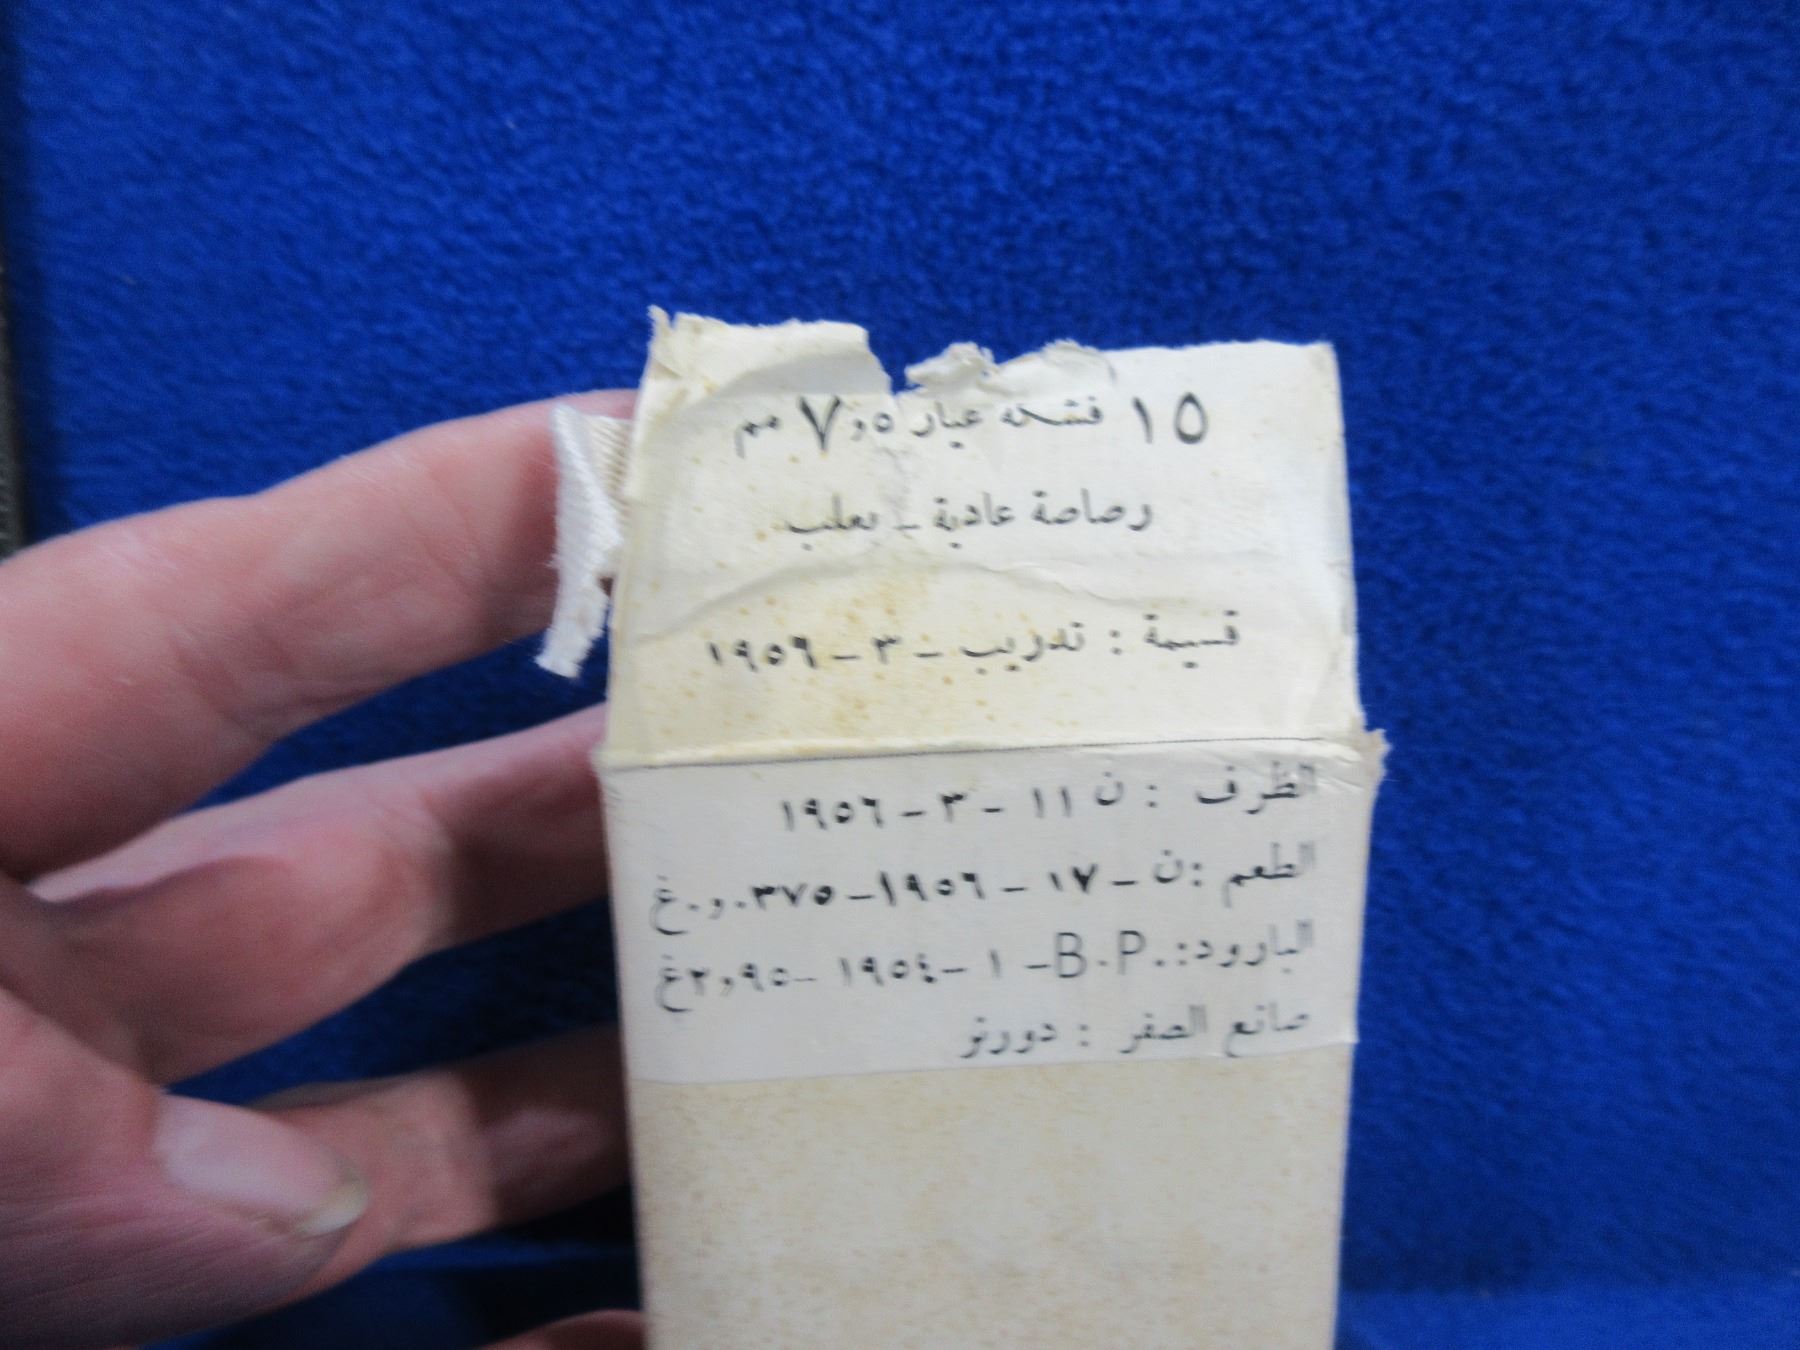 ١٥ فشكه عيار ٧,٥ مم
رصاصة عادية - بعلب
قسيمة : تدريب - ٣ - ١٩٥٦
الظرف : ن ١١ - ٣ - ١٩٥٦
الطعم : ن - ١٧ - ١٩٥٦ - ٠,٠٣٧٥ غ
البارود : .B.P - ١ - ١٩٥٤ - ٢,٩٥ غ
صانع الصفر : دورنو